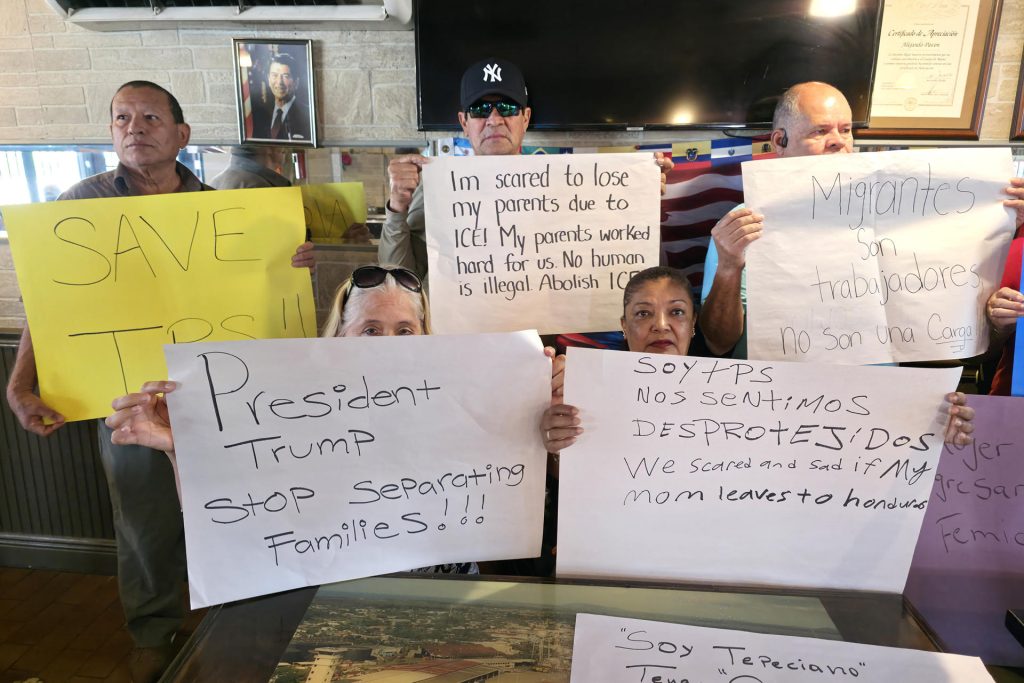 Certificado de Apreciación
SAVE
TPS!!
Im scared to lose
my parents due to
ICE! My parents worked
hard for us. No human
is illegal. Abolish ICE
Migrantes
Son
trabajadores
no Son una Carga
President
Trump
Stop Separating
Families!!!
SOY TPS
NOS SENTIMOS
DESPROTEJIDOS
We scared and sad if My
mom leaves to honduras
"Soy Tepeciano"